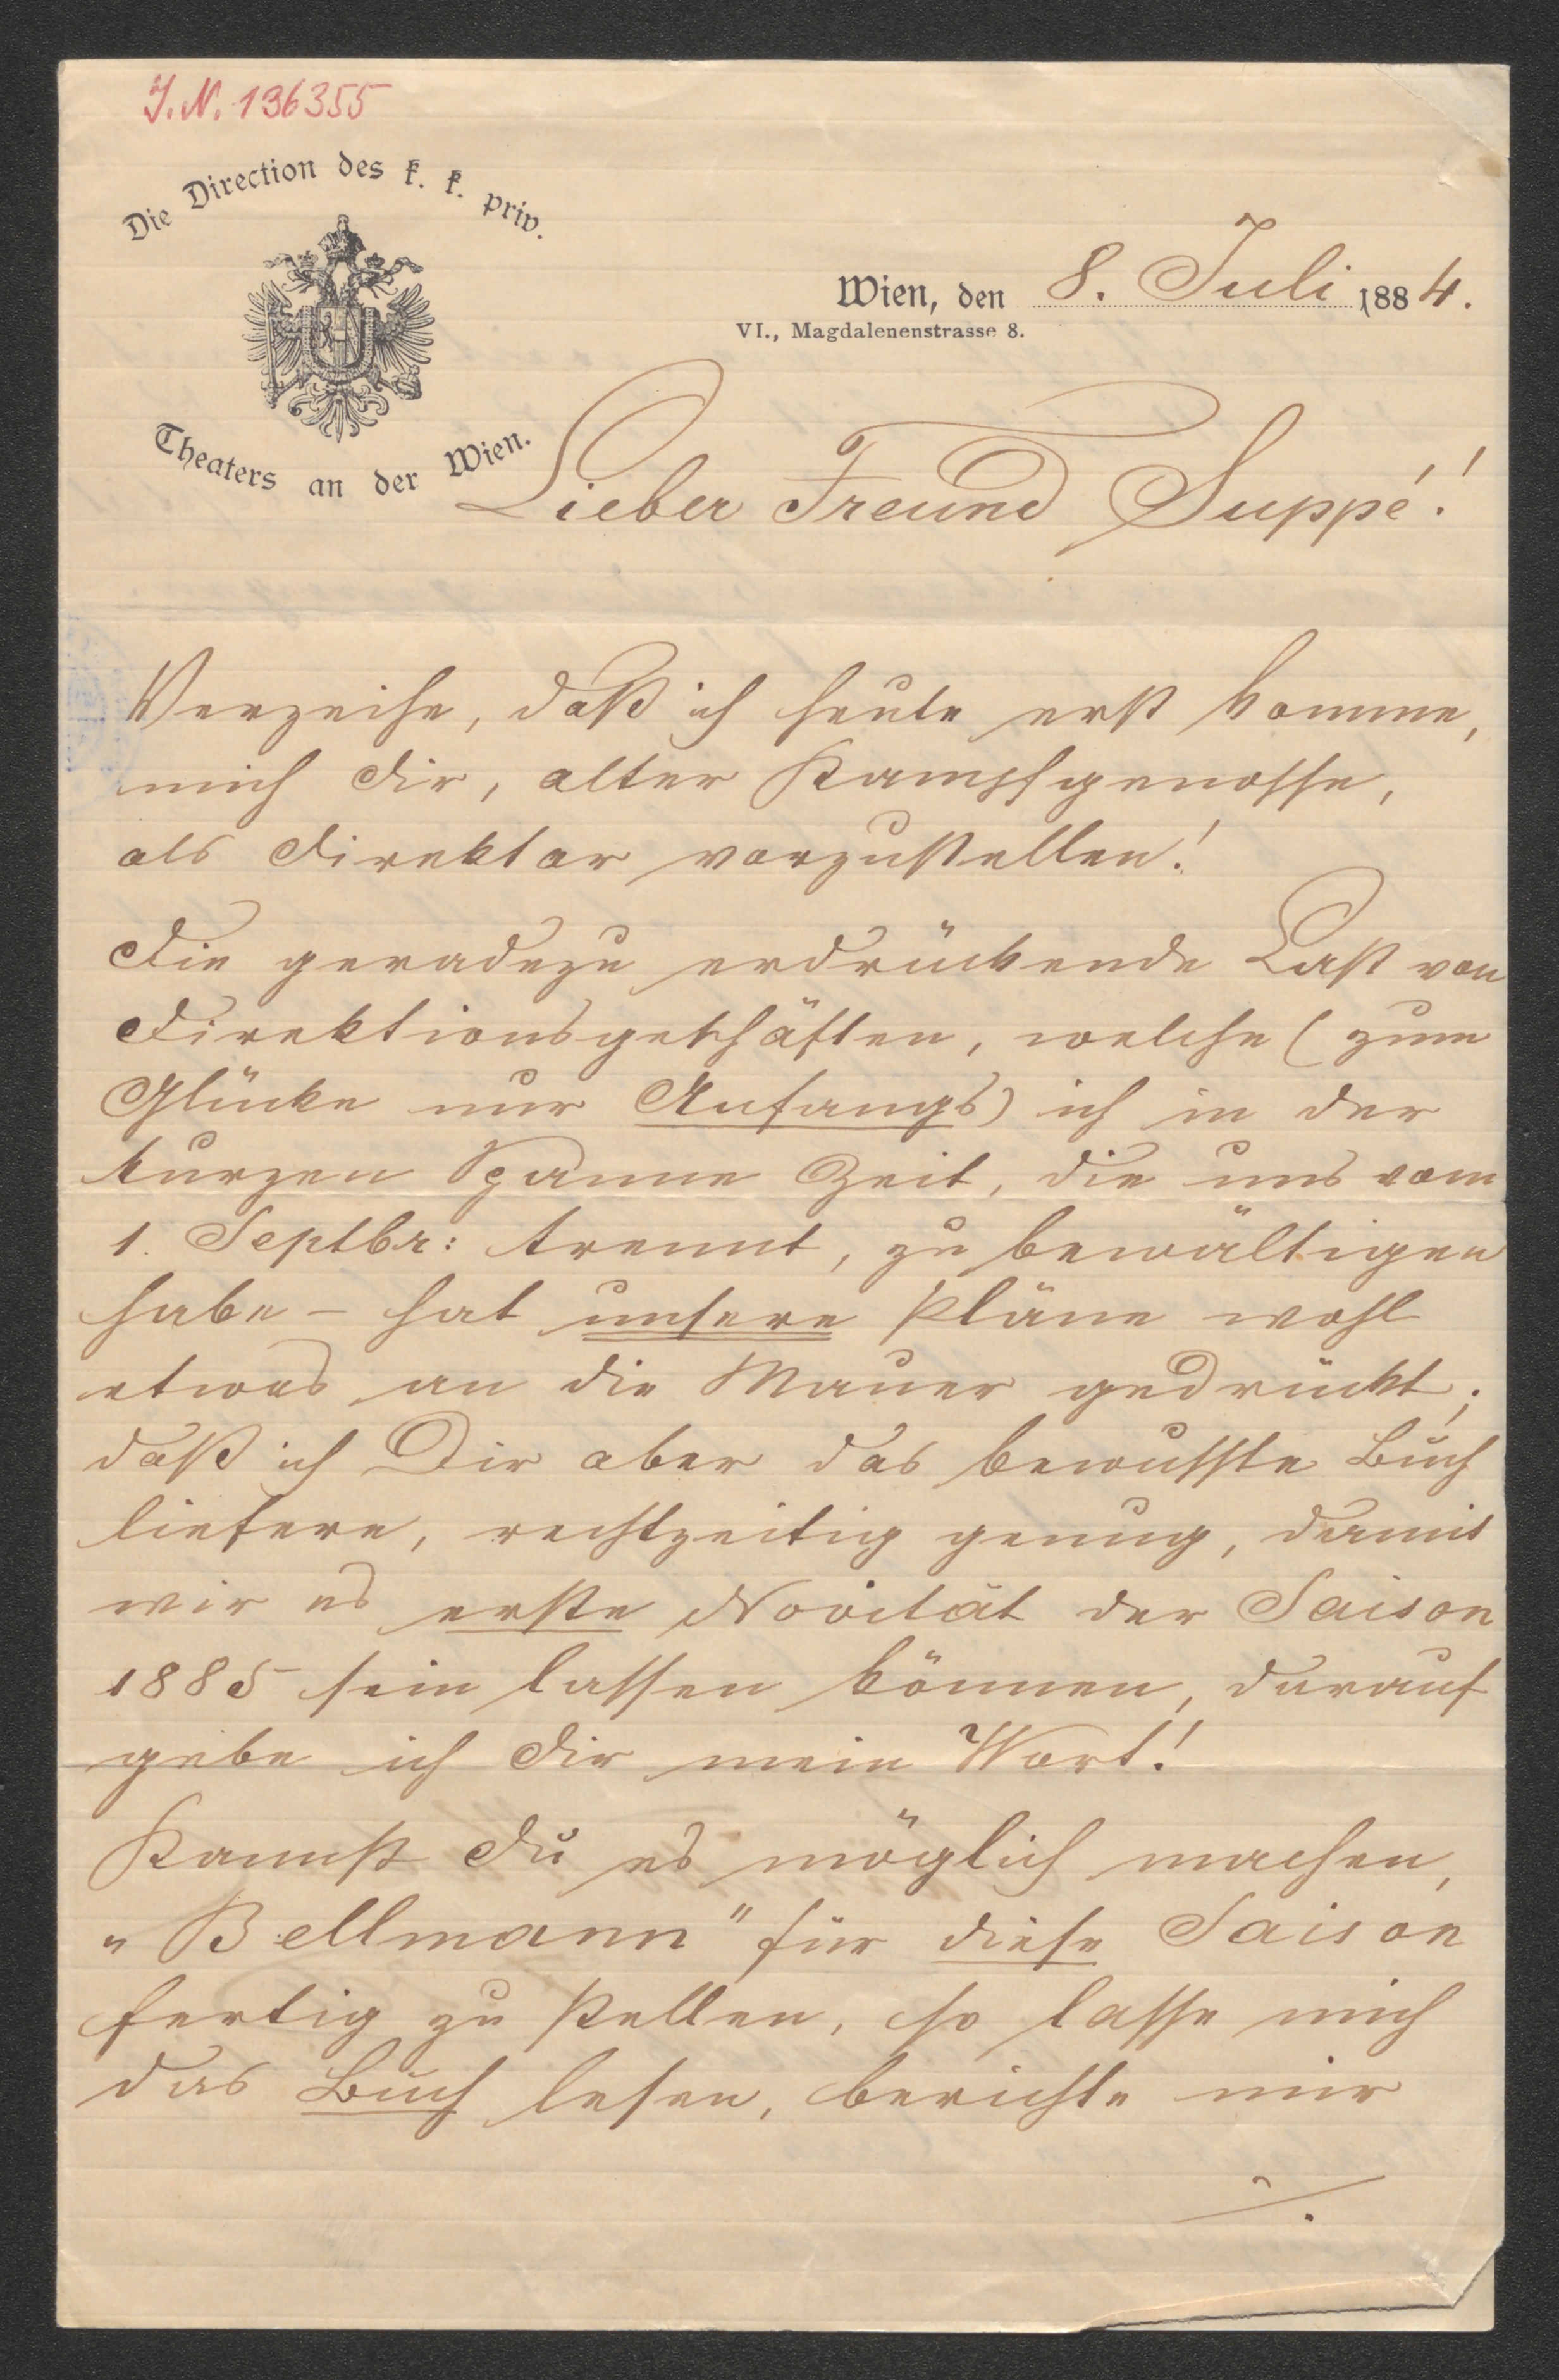 J. N. 136355
Die Direction des k. k. priv.
Theaters an der Wien.
Wien, den 8. Juli 1884.
VI., Magdalenenstrasse 8.
Lieber Freund Suppé!
Verzeihe, daß ich heute erst komme,
mich Dir, alter Kampfgenosse,
als Direktor vorzustellen!
Die geradezu erdrückende Last von
Direktionsgeschäften, welche (zum
Glücke nur Anfangs) ich in der
kurzen Spanne Zeit, die uns vom
1. Septbr: trennt, zu bewältigen
habe – hat unsere Pläne wohl
etwas an die Mauer gedrückt;
daß ich Dir aber das bewusste Buch
liefere, rechtzeitig genug, damit
wir es erste Novität der Saison
1885 sein lassen können, darauf
gebe ich Dir mein Wort!
Kannst Du es möglich machen,
„Bellmann" für diese Saison
fertig zu stellen, so lasse mich
das Buch lesen, berichte mir
./.